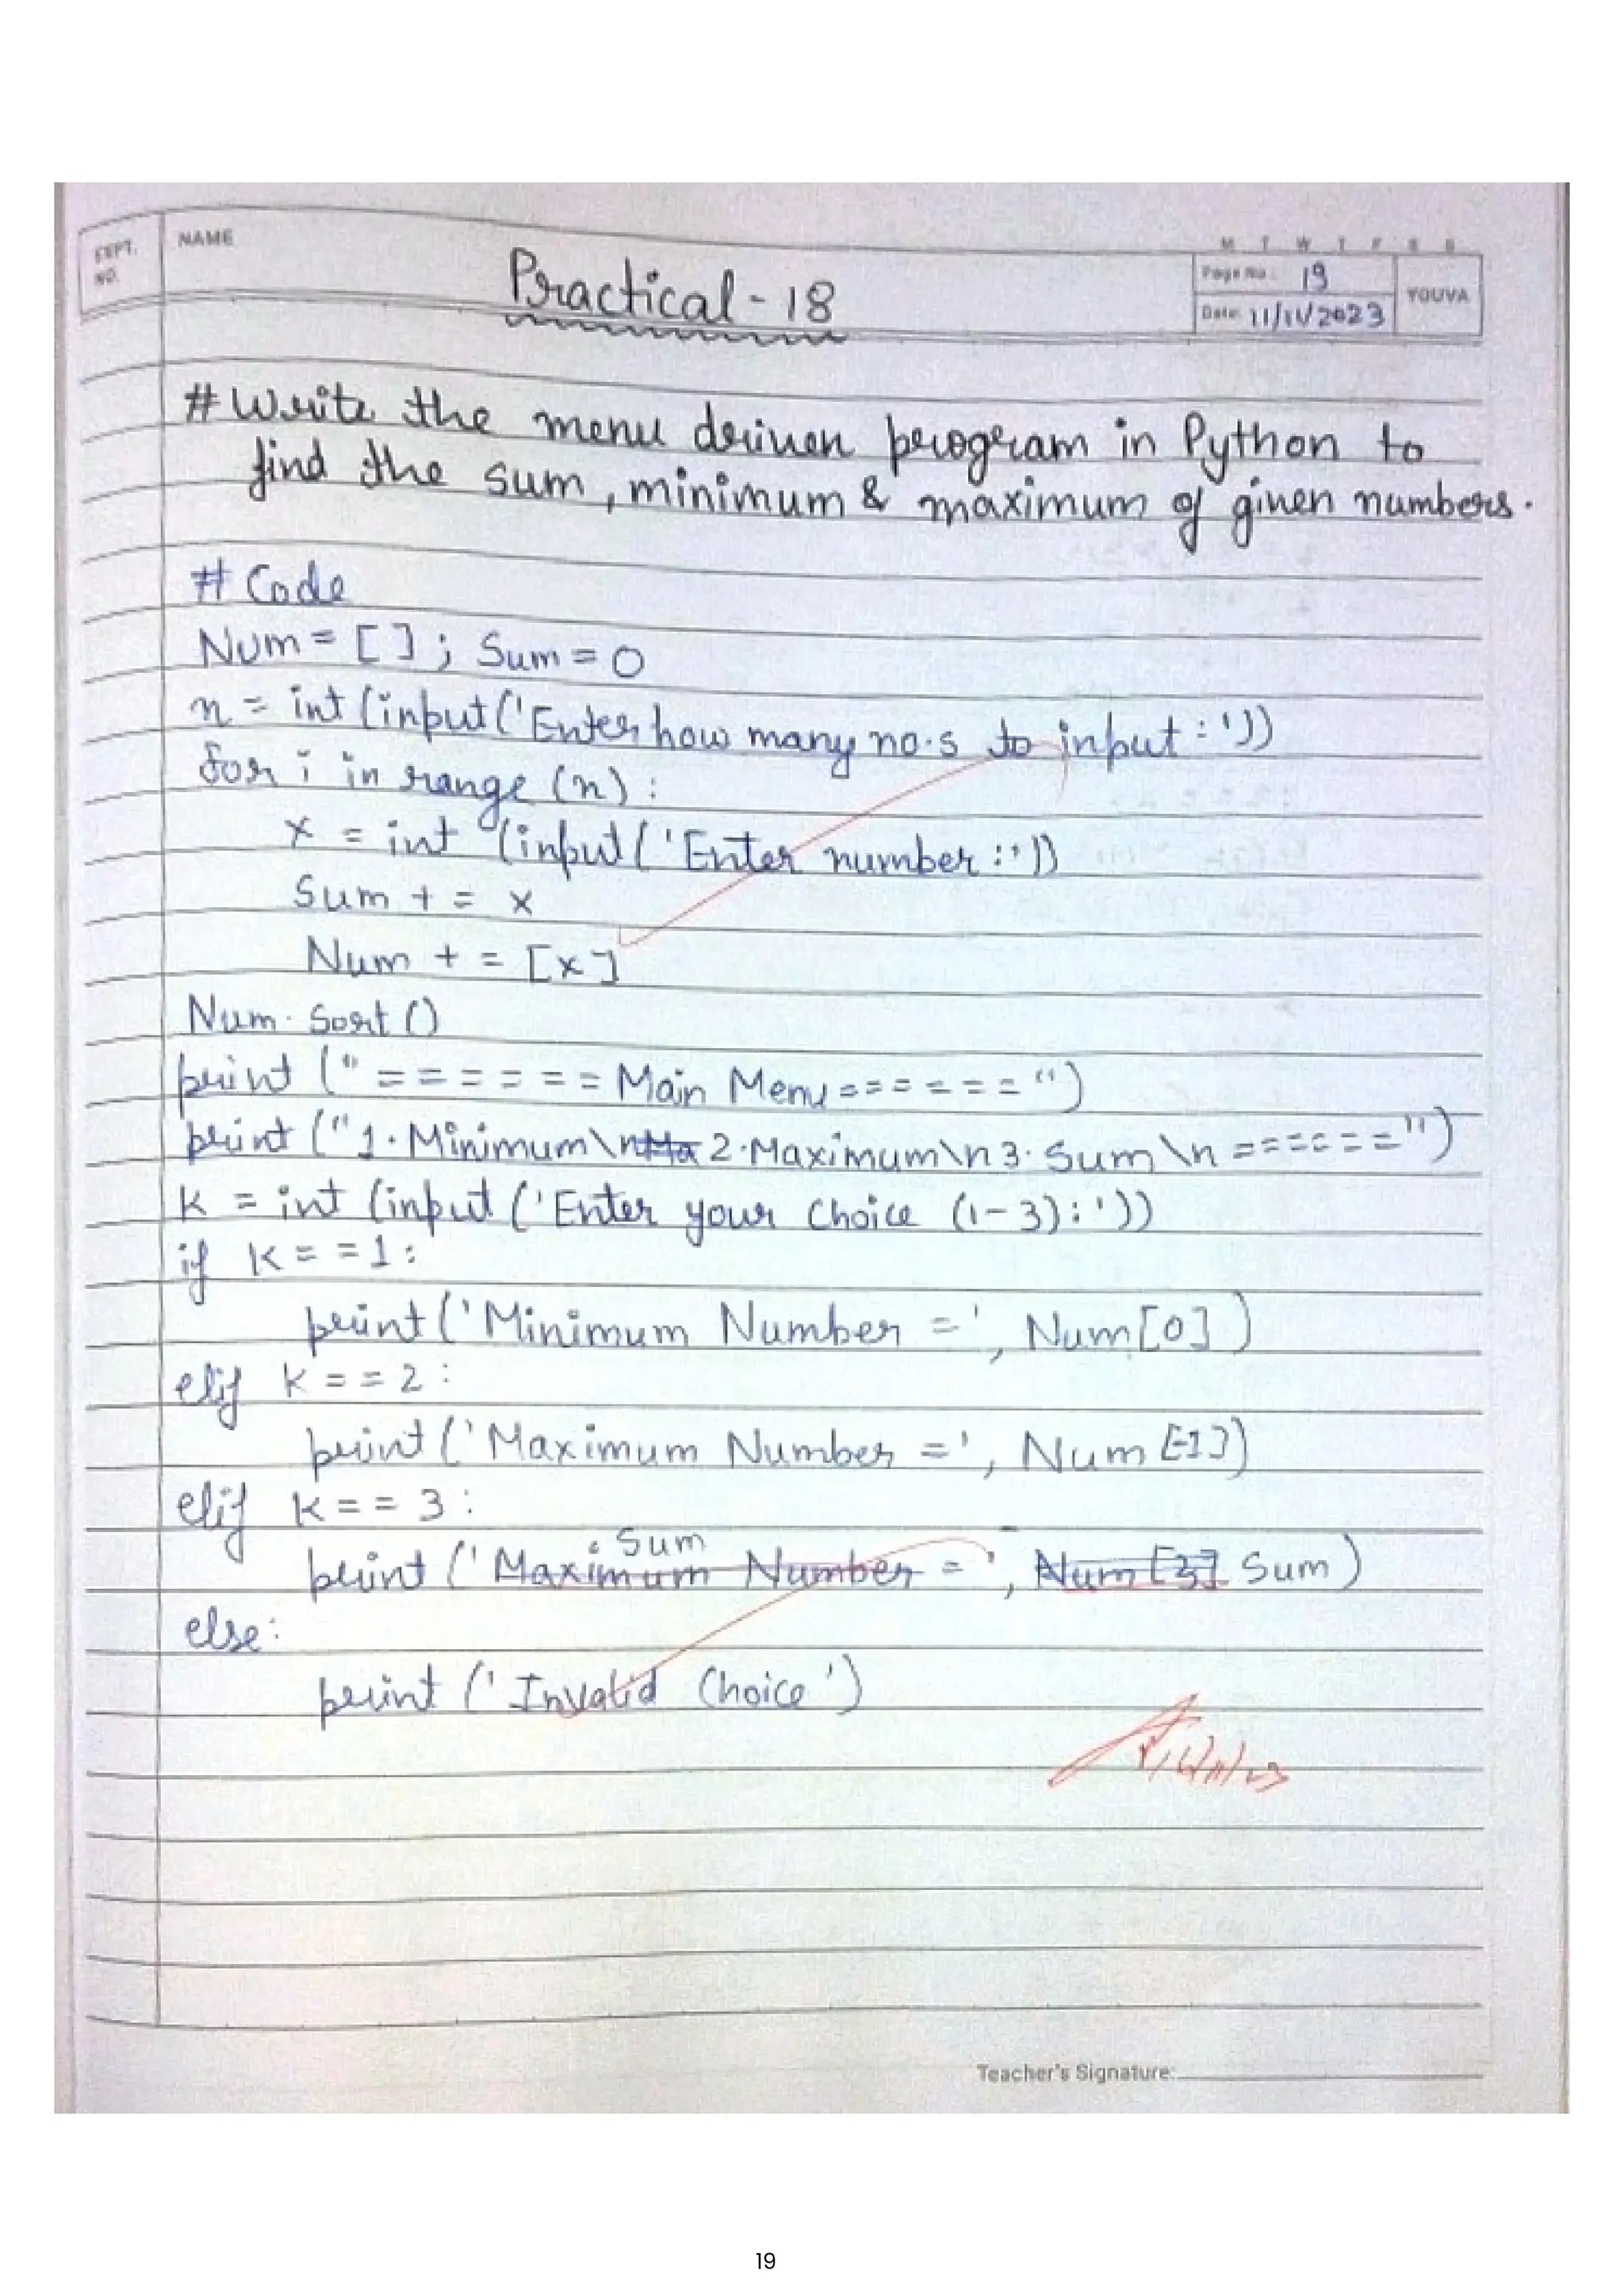 DEPT.
NO.
NAME
M T W T F S S
Practical - 18
Page No.: 19
Date: 11/11/2023
YOUVA
# Write the menu driven program in Python to
find the sum, minimum & maximum of given numbers.
# Code
Num = [ ] ; Sum = 0
n = int (input('Enter how many no.s to input : '))
for i in range (n) :
x = int (input ('Enter number :'))
Sum + = x
Num + = [x]
Num. Sort ()
print (" = = = = = = Main Menu = = = = = = ")
print ("1. Minimum\n 2. Maximum\n 3. Sum \n = = = = = = ")
k = int (input ('Enter your Choice (1-3) : '))
if k = = 1 :
print ('Minimum Number = ', Num [0] )
elif k = = 2 :
print ('Maximum Number = ', Num [-1])
elif k = = 3 :
Sum
print (' Maximum Number = ', Num [3] Sum )
else :
print (' Invalid Choice ')
Teacher's Signature:
19